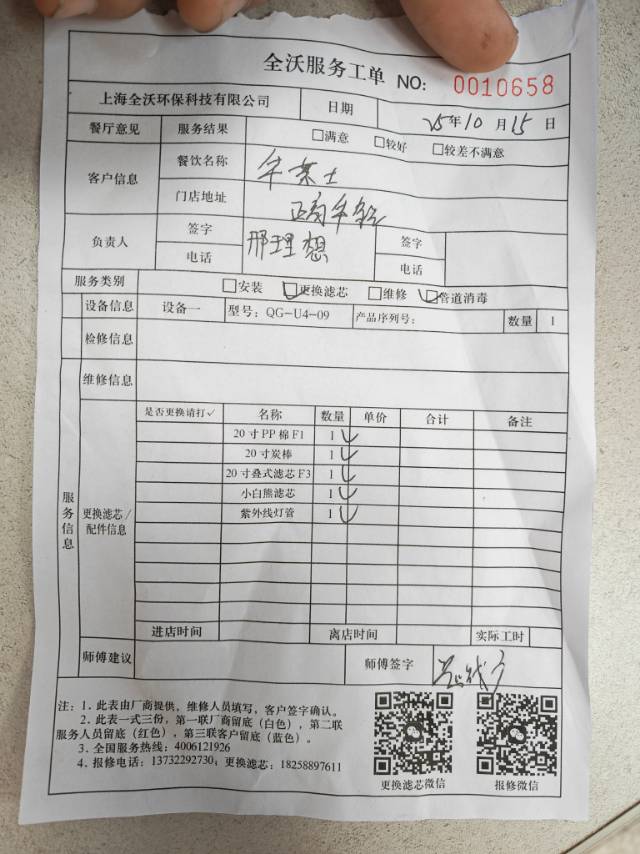 全沃服务工单 NO: 0010658
上海全沃环保科技有限公司 日期 25年10月15日
餐厅意见 服务结果 □满意 □较好 □较差不满意
客户信息 餐饮名称
门店地址
负责人 签字 邢理想 签字
电话 电话
服务类别 □安装 □更换滤芯 □维修 □管道消毒
设备信息 设备一 型号: QG-U4-09 产品序列号: 数量 1
检修信息
维修信息
服务信息
更换滤芯/配件信息
是否更换请打✓ 名称 数量 单价 合计 备注
20寸PP棉F1 1 ✓
20寸炭棒 1 ✓
20寸叠式滤芯F3 1 ✓
小白熊滤芯 1 ✓
紫外线灯管 1 ✓
进店时间 离店时间 实际工时
师傅建议 师傅签字
注: 1. 此表由厂商提供, 维修人员填写, 客户签字确认。
2. 此表一式三份, 第一联厂商留底(白色), 第二联
服务人员留底(红色), 第三联客户留底(蓝色)。
3. 全国服务热线: 4006121926
4. 报修电话: 13732292730; 更换滤芯: 18258897611
更换滤芯微信 报修微信